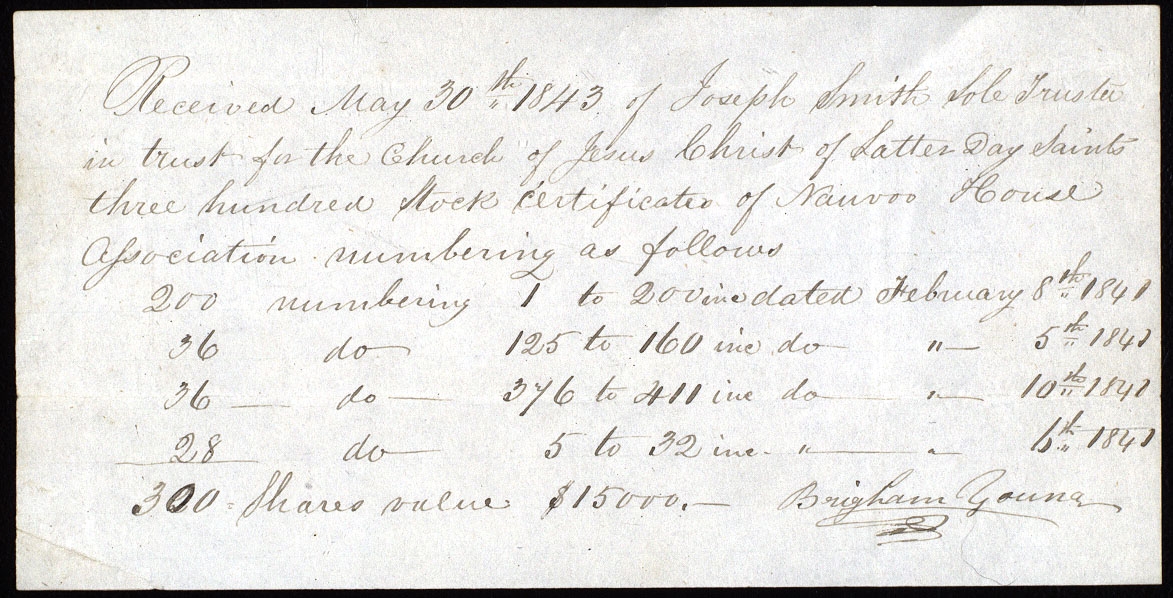 Received May 30th 1843 of Joseph Smith Sole Trustee
in trust for the Church of Jesus Christ of Latter Day Saints
three hundred Stock certificates of Nauvoo House
Association numbering as follows
200 numbering 1 to 200 inc dated February 8th 1841
36 do 125 to 160 inc do " 5th 1841
36 — do — 376 to 411 inc do — " — 10th 1841
28 do — 5 to 32 inc. " — " 6th 1841
300 Shares value $15000.— Brigham Young